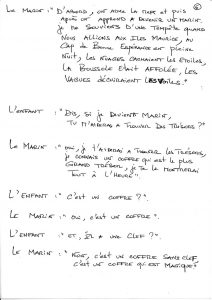 Le Marin : "D'abord, on aime la mer et puis
après on apprend à devenir un marin.
Je me souviens d'une tempête quand
nous allions aux Iles Maurice, au
Cap de Bonne Espérance en pleine
nuit, les nuages cachaient les étoiles,
la boussole était affolée, les
vagues déchiraient les voiles."
L'enfant : "Dis, si je deviens marin,
tu m'aideras à trouver des trésors ?"
Le Marin : "Oui, je t'aiderai à trouver les trésors,
je connais un coffre qui est le plus
grand trésor, je te le montrerai
tout à l'heure".
L'enfant : "C'est un coffre ?"
Le Marin : "Oui, c'est un coffre".
L'enfant : "Et, il a une clef ?"
Le Marin : "Non, c'est un coffre sans clef,
c'est un coffre qui est magique"